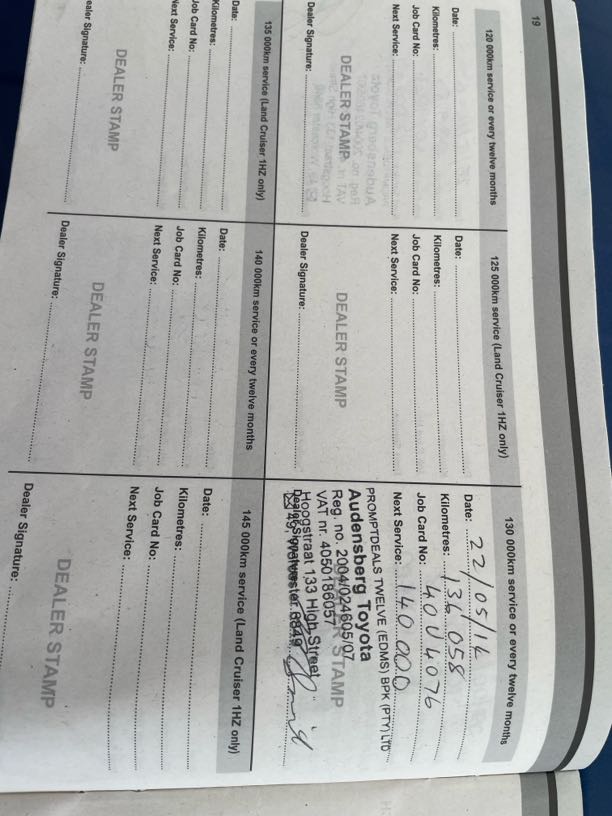 19
120 000km service or every twelve months
Date:
Kilometres:
Job Card No:
Next Service:
DEALER STAMP
Dealer Signature:
125 000km service (Land Cruiser 1HZ only)
Date:
Kilometres:
Job Card No:
Next Service:
DEALER STAMP
Dealer Signature:
130 000km service or every twelve months
Date: 22/05/14
Kilometres: 134 058
Job Card No: 40U4076
Next Service: 140 000
PROMPTDEALS TWELVE (EDMS) BPK (PTY) LTD
Audensberg Toyota
Reg. no. 2004/024605/07
VAT nr. 4050186057
DEALER STAMP
Hoogstraat 133 High Street
Dealer Signature:
Worcester 6849
135 000km service (Land Cruiser 1HZ only)
Date:
Kilometres:
Job Card No:
Next Service:
DEALER STAMP
ealer Signature:
140 000km service or every twelve months
Date:
Kilometres:
Job Card No:
Next Service:
DEALER STAMP
Dealer Signature:
145 000km service (Land Cruiser 1HZ only)
Date:
Kilometres:
Job Card No:
Next Service:
DEALER STAMP
Dealer Signature: